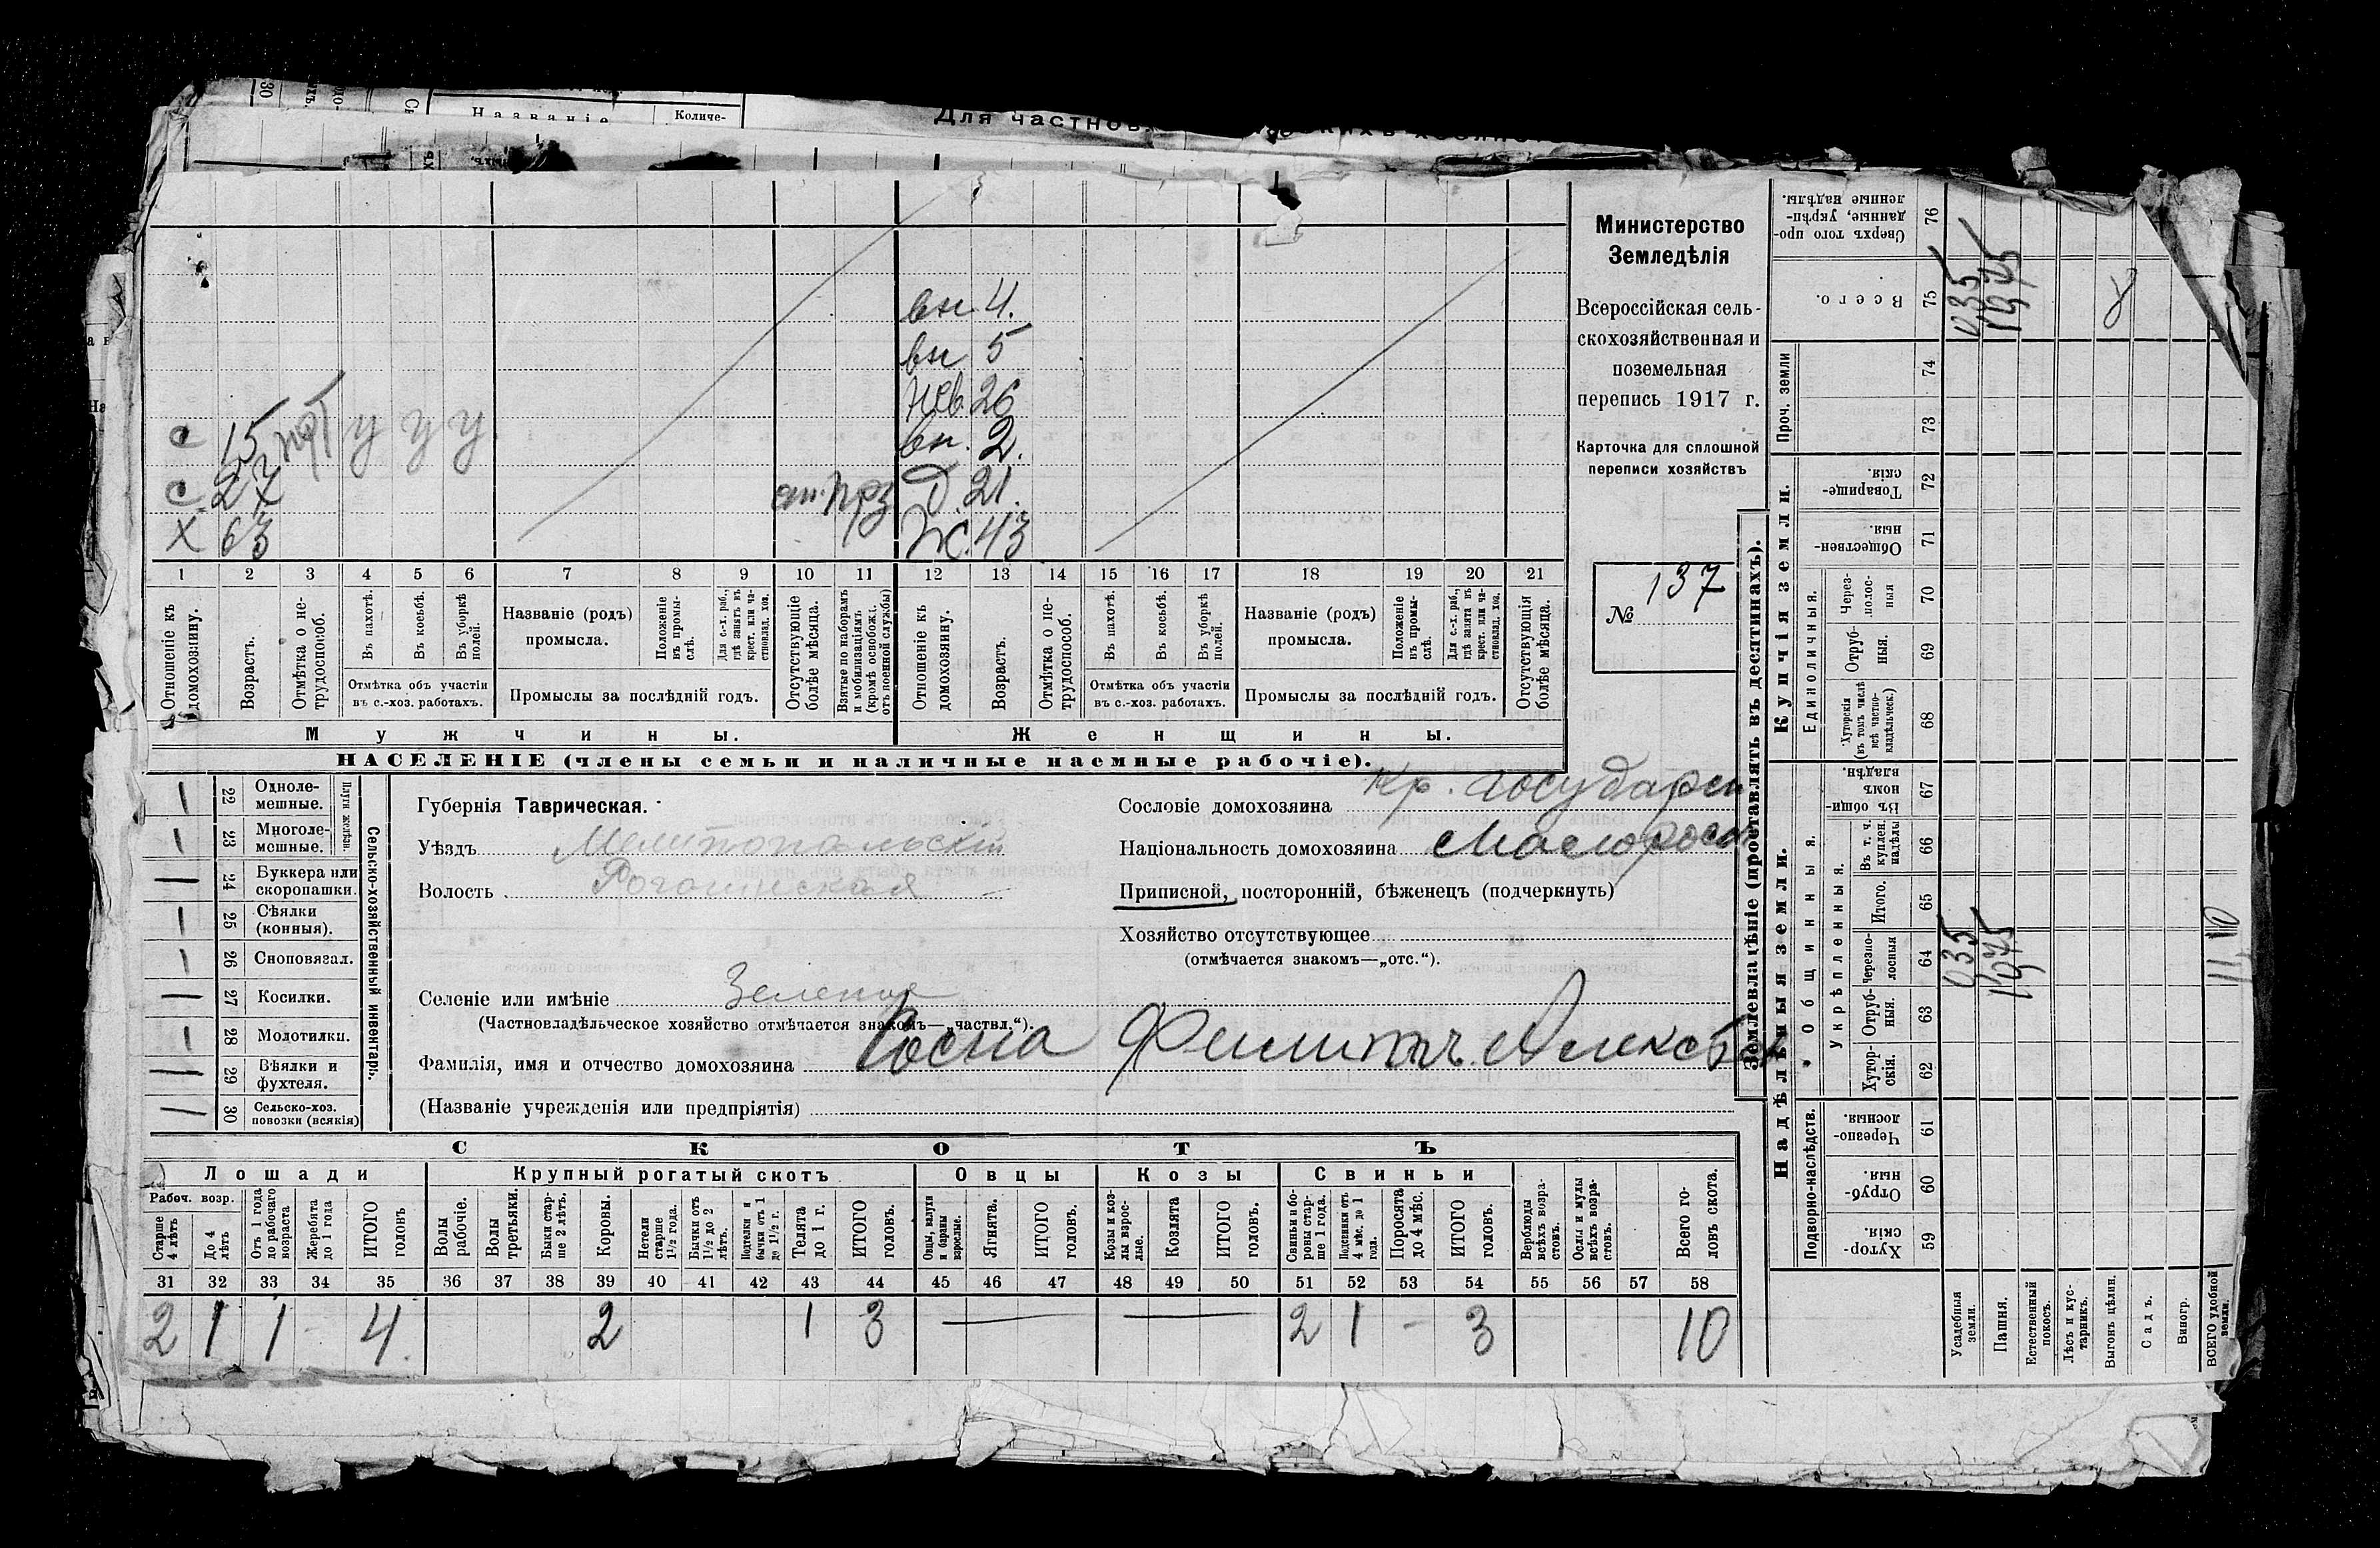 Названіе
Количе-
Для частнов
вн 4.
вн 5
нев. 26
с 15 прт у у у
вн. 2.
с. 27
от.
Д. 21.
Х 63
Ж. 43
1 2 3 4 5 6 7 8 9 10 11 12 13 14 15 16 17 18 19 20 21
Отношеніе къ домохозяину.
Возрастъ.
Отмѣтка о не-трудоспособ.
Въ пахотѣ.
Въ косьбѣ.
Въ уборкѣ полей.
Отмѣтка объ участіи въ с.-хоз. работахъ.
Названіе (родъ) промысла.
Положеніе въ промы-слѣ.
Для с.-х. раб., гдѣ занятъ въ крест. или ча-стновлад. хоз.
Промыслы за послѣдній годъ.
Отсутствующіе болѣе мѣсяца.
Взятые по наборамъ и мобилизаціямъ (кромѣ освобожд. отъ военной службы)
Отношеніе къ домохозяину.
Возрастъ.
Отмѣтка о не-трудоспособ.
Въ пахотѣ.
Въ косьбѣ.
Въ уборкѣ полей.
Отмѣтка объ участіи въ с.-хоз. работахъ.
Названіе (родъ) промысла.
Положеніе въ промы-слѣ.
Для с.-х. раб., гдѣ занята въ крест. или ча-стновлад. хоз.
Промыслы за послѣдній годъ.
Отсутствующія болѣе мѣсяца.
Мужчины.
Женщины.
НАСЕЛЕНІЕ (члены семьи и наличные наемные рабочіе).
Министерство
Земледѣлія
Всероссійская сель-
скохозяйственная и
поземельная
перепись 1917 г.
Карточка для сплошной
переписи хозяйствъ
№ 137
22 Одноле-мешные.
23 Многоле-мешные.
Плуги желѣзн.
24 Буккера или скоропашки.
25 Сѣялки (конныя).
26 Сноповязал.
27 Косилки.
28 Молотилки.
29 Вѣялки и фухтеля.
30 Сельско-хоз. повозки (всякія)
Сельско-хозяйственный инвентарь.
Губернія Таврическая.
Уѣздъ Мелитопольскій
Волость Рогачинская
Селеніе или имѣніе Зеленое
(Частновладѣльческое хозяйство отмѣчается знакомъ—„частвл.“).
Фамилія, имя и отчество домохозяина Росна Филиппъ Алексѣев
(Названіе учрежденія или предпріятія)
Сословіе домохозяина Кр. государств
Національность домохозяина Малоросс
Приписной, посторонній, бѣженецъ (подчеркнуть)
Хозяйство отсутствующее
(отмѣчается знакомъ—„отс.“).
СКОТЪ
Лошади
Крупный рогатый скотъ
Овцы
Козы
Свиньи
Рабоч. возр.
Старше 4 лѣтъ
До 4 лѣтъ
Отъ 1 года до рабочаго возраста
Жеребята до 1 года
ИТОГО головъ
Волы рабочіе.
Волы третьяки.
Быки стар-ше 2 лѣтъ.
Коровы.
Нетели старше 1½ года.
Бычки отъ 1½ до 2 лѣтъ.
Подтелки и бычки отъ 1 до 1½ г.
Телята до 1 г.
ИТОГО головъ.
Овцы, валухи и бараны взрослые.
Ягнята.
ИТОГО головъ.
Козы и коз-лы взрос-лые.
Козлята
ИТОГО головъ.
Свиньи и бо-ровы стар-ше 1 года.
Подсвинки отъ 4 мѣс. до 1 года.
Поросята до 4 мѣс.
ИТОГО головъ.
Верблюды всѣхъ возра-стовъ.
Ослы и мулы всѣхъ возра-стовъ.
Всего го-ловъ скота.
31 32 33 34 35 36 37 38 39 40 41 42 43 44 45 46 47 48 49 50 51 52 53 54 55 56 57 58
2 1 1 - 4 2 1 3 — — 2 1 - 3 10
Землевладѣніе (проставлять въ десятинахъ).
Надѣльныя земли.
Купчія земли.
Проч. земли
Подворно-наслѣдств.
Общинныя.
Укрѣпленныя.
Единоличныя.
Хутор-скія. 59
Отруб-ныя. 60
Черезпо-лосныя. 61
Хутор-скія. 62
Отруб-ныя. 63
Черезпо-лосныя 64
Итого. 65
Въ т. ч. куплен. надѣлы 66
Въ общин-номъ владѣн. 67
Хуторскія (въ томъ числѣ всѣ частно-владѣльческ.) 68
Отруб-ныя. 69
Через-полос-ныя 70
Обществен-ныя. 71
Товарище-скія. 72
73
74
Всего. 75
Сверхъ того про-данные, укрѣп-ленные надѣлы. 76
Усадебныя земли.
Пашня.
Естественный покосъ.
Лѣсъ и кус-тарникъ.
Выгонъ цѣлин.
Садъ.
Виногр.
ВСЕГО удобной земли.
0,35
0,35